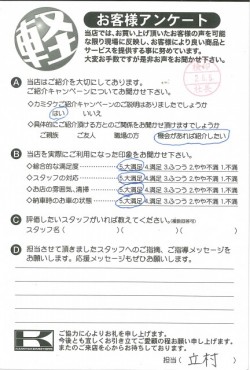 軽
お客様アンケート
当店では、お買い上げ頂いたお客様の声を可能
な限り現場に反映し、お客様により良い商品と
サービスを提供する事に努めています。
大変お手数ですが是非お声をお聞かせ下さい。
A 当店はご紹介を大切にしております。
ご紹介キャンペーンについてお聞かせ下さい。
◇カミタケご紹介キャンペーンのご説明はありましたでしょうか
はい いいえ
◇具体的にご紹介頂ける方とのご関係をお聞かせ頂けますでしょうか
ご親族 ご友人 職場の方 機会があれば紹介したい
B 当店を実際にご利用になった印象をお聞かせ下さい。
◇総合的な満足度 5.大満足 4.満足 3.ふつう 2.やや不満 1.不満
◇スタッフの対応 5.大満足 4.満足 3.ふつう 2.やや不満 1.不満
◇お店の雰囲気、清掃 5.大満足 4.満足 3.ふつう 2.やや不満 1.不満
◇納車時のお車の状態 5.大満足 4.満足 3.ふつう 2.やや不満 1.不満
C 評価したいスタッフがいれば教えてください。(複数回答可)
スタッフ名( )( )
D 担当させて頂きましたスタッフへのご指摘、ご指導メッセージを
お願いします。応援メッセージもぜひお願いします。
K
ご協力に心よりお礼を申し上げます。
今後とも宜しくお引き立てご愛顧の程お願い申し上げます。
またのご来店を心からお待ちしております。
担当( 立村 )